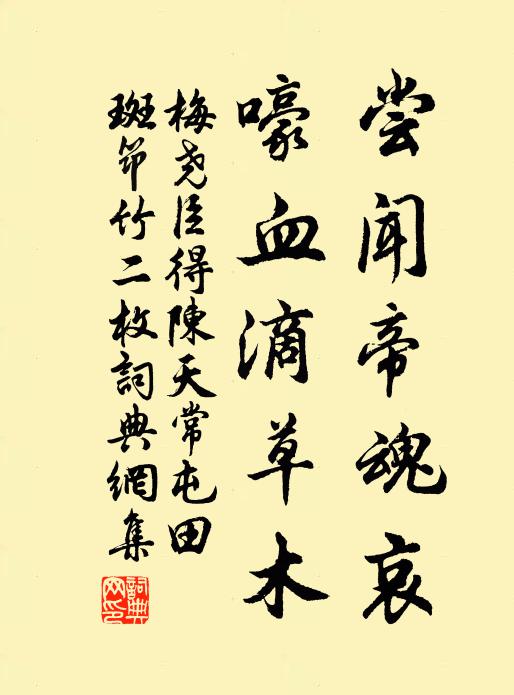 尝闻帝魂哀
嚎血滴草木
梅尧臣得陳天常屯田
斑笻竹二枚詞典網集
詞典网印